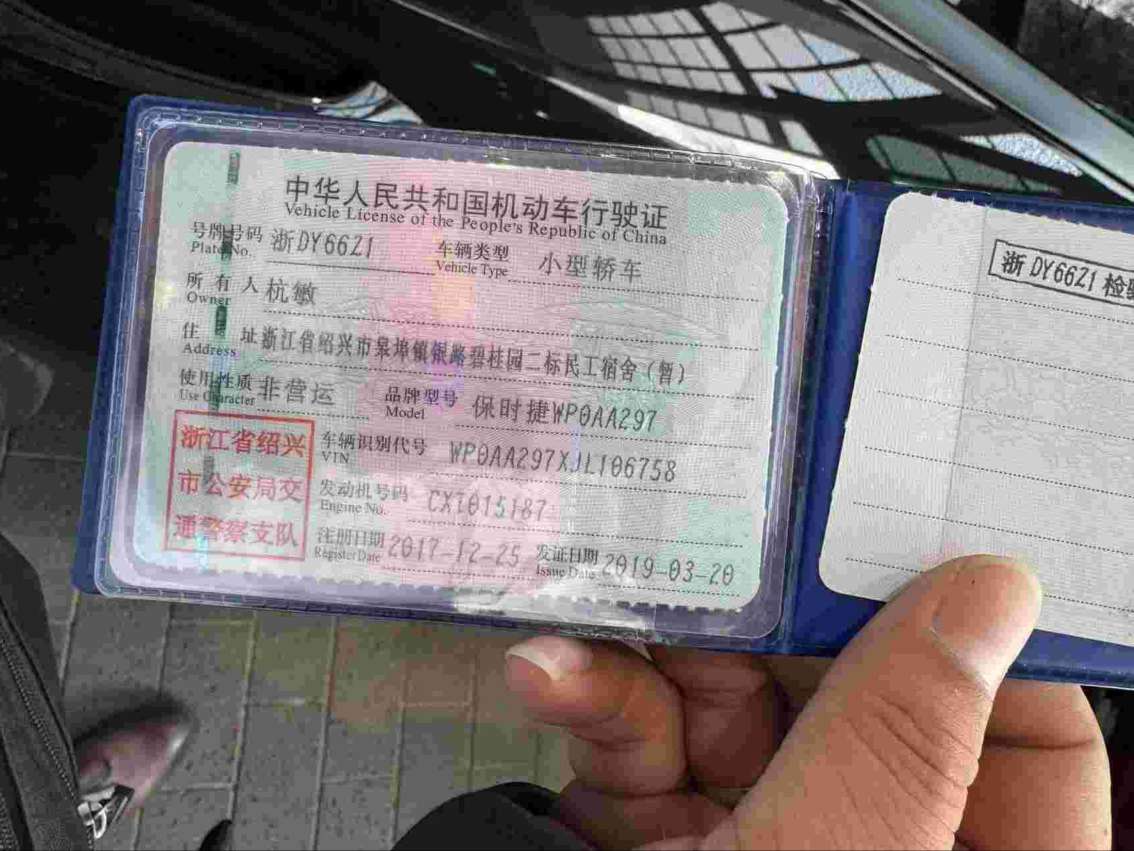 中华人民共和国机动车行驶证
Vehicle License of the People's Republic of China
号牌号码 浙DY66Z1 车辆类型 小型轿车
Plate No. Vehicle Type
所有人 杭敏
Owner
住址 浙江省绍兴市皋埠镇银路碧桂园二标民工宿舍(暂)
Address
使用性质 非营运 品牌型号 保时捷WP0AA297
Use Character Model
浙江省绍兴
市公安局交
通警察支队
车辆识别代号 WP0AA297XJL106758
VIN
发动机号码 CXT015187
Engine No.
注册日期 2017-12-25 发证日期 2019-03-20
Register Date Issue Date
浙DY66Z1检